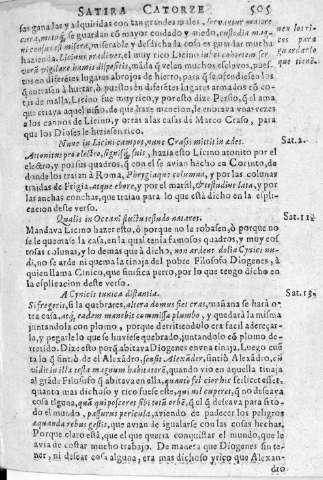 SATIRA CATORZE.
505
sas ganadas y adquiridas con tan grandes males, servantur maiore
cura, metuque, se guardan cõ mayor cuidado y miedo, custodia mag-
ni census est misera, miserable y desdichada cosa es guardar mucha
hazienda. Licinus prædives, el muy rico Licino iubet cohortem ser-
vorũ vigilare hamis dispositis, mãda q̃ velen muchos esclavos, pues-
tos en diferẽtes lugares abrojos de hierro, para q̃ se ofendiesen los
q̃ entrasen à hurtar, ò puestos en diferẽtes lugares armados cõ co-
tas de malla, Licino fue muy rico, y por esto dize Persio, q̃ el ama
que criava aquel niño, de que haze mencion, le embiava unas vezes
a los campos de Licino, y otras a las casas de Marco Craso, para
que los Dioses le hiziesen rico.
nen los ri-
cos para
guardarlo
que tienẽ.
Nunc in Licini campos, nunc Crassi mittit in ædes.
Sat. 2.
Attonitus pro electro, signisque suis, hazia esto Licino atonito por el
electro, y por sus quadros, q̃ con el se avian hecho en Corinto, de
donde los traian à Roma, Phrygiaque columna, y por las colunas
traidas de Frigia, atque ebore, y por el marfil, & testudine lata, y por
las anchas conchas, que traian para lo que està dicho en la espli-
cacion deste verso.
Qualis in Oceani fluctu testudo nataret.
Sat. 11.
Mandava Licino hazer esto, ò porque no le robasen, ò porque no
se le quemase la casa, en la qual tenia famosos quadros, y muy cos
tosas colunas, y lo demas que à dicho, non ardent dolia Cynici nu-
di, no se arde ni quema la tinaja del pobre Filosofo Diogenes, à
quien llama Cinico, que sinifica perro, por lo que tengo dicho en
la esplicacion deste verso.
A Cynicis tunica distantia.
Sat. 13.
Si fregeris, si la quebrares, altera domus fiet cras, mañana se harà o
tra casa, atque eadem manebit commissa plumbo, y quedarà la misma
juntandola con plomo, porque derritiendolo era facil adereçar-
la, y pegarle lo que se huviese quebrado, juntandolo cõ plomo de-
rretido. Dize esto porq̃ abitava Diogenes en una tinaja. Luego cuẽ
ta lo q̃ sintiò de el Alexãdro, sensit Alexãder, sintiò Alexãdro, cũ
vidit in illa testa magnum habitatorẽ, quando vio en aquella tinaja
al grãde Filosofo q̃ abitava en ella, quanto felicior hic scilicet esset,
quanto mas dichoso y rico fuese este, qui nil cuperet, q̃ no deseava
cosa alguna, quã qui posceret sibi totũ orbẽ, q̃ el q̃ deseava para si to
do el mundo, passurus pericula, aviendo de padecer los peligros
æquanda rebus gestis, que avian de igualarse con las cosas hechas,
Porque claro està, que el que queria conquistar el mundo, que le
avia de costar mucho trabajo. De manera que Diogenes sin te-
ner, ni desear cosa alguna, era mas dichoso y rico que Alexan-
dro